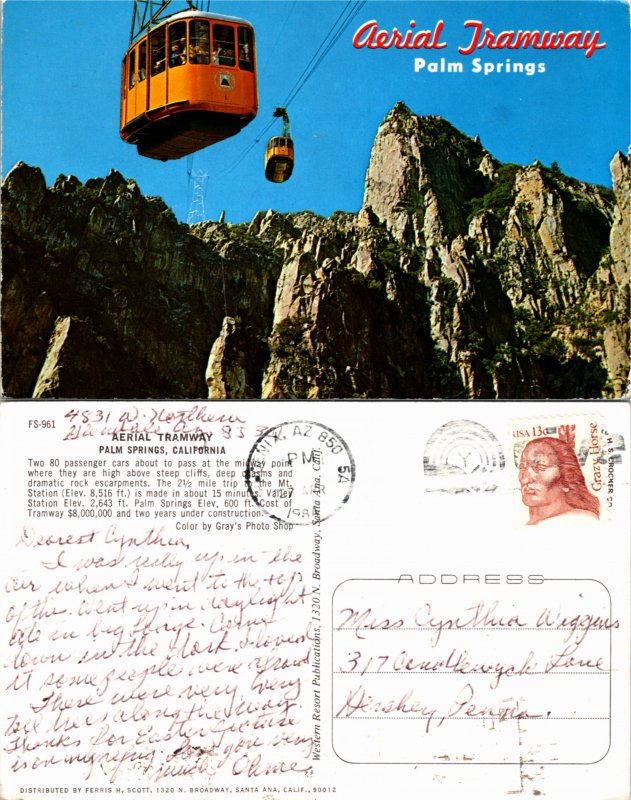 Aerial Tramway
Palm Springs
FS-961
4831 W. Northern
Glendale Az 853
AERIAL TRAMWAY
PALM SPRINGS, CALIFORNIA
Two 80 passenger cars about to pass at the midway point
where they are high above steep cliffs, deep chasms and
dramatic rock escarpments. The 2½ mile trip to the Mt.
Station (Elev. 8,516 ft.) is made in about 15 minutes. Valley
Station Elev. 2,643 ft. Palm Springs Elev. 600 ft. Cost of
Tramway $8,000,000 and two years under construction.
Color by Gray's Photo Shop
Dearest Cynthia,
I was really up in the
air when I went to the top
of this. Went up in daylight
ate in big lodge. Came
down in the dark. I loved
it some people were afraid
There were very very
tall trees along the way.
Thanks for Easter picture
is on my refrig.
love
DISTRIBUTED BY FERRIS H. SCOTT, 1320 N. BROADWAY, SANTA ANA, CALIF., 90012
Western Resort Publications, 1320 N. Broadway, Santa Ana, Calif.
AZ 850
PM
5A
APR
USA 13c
Crazy Horse
ADDRESS
Miss Cynthia Wiggins
317 Candlewyck Lane
Hershey, Penna.